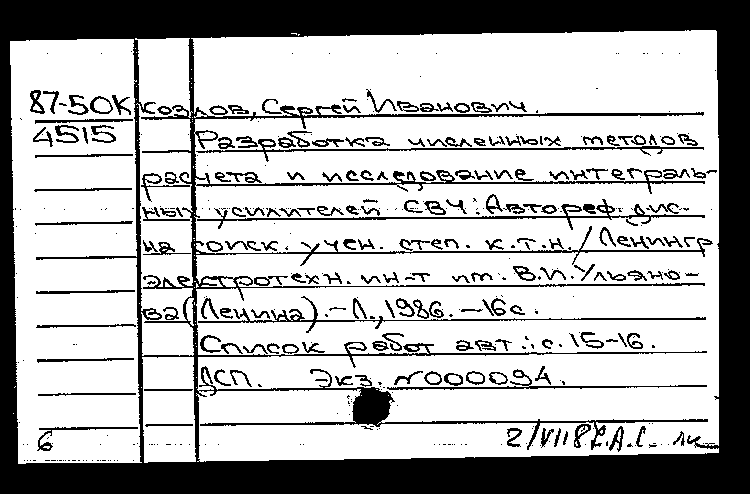 87-50К Козлов, Сергей Иванович.
4515 Разработка численных методов
расчета и исследование интеграль-
ных усилителей СВЧ: Автореф. дис.
на соиск. учен. степ. к.т.н. / Ленингр.
электротехн. ин-т им. В.И. Ульяно-
ва (Ленина). – Л., 1986. – 16 с.
Список работ авт.: с. 15-16.
ДСП. Экз. №000094.
6 2/VII 87